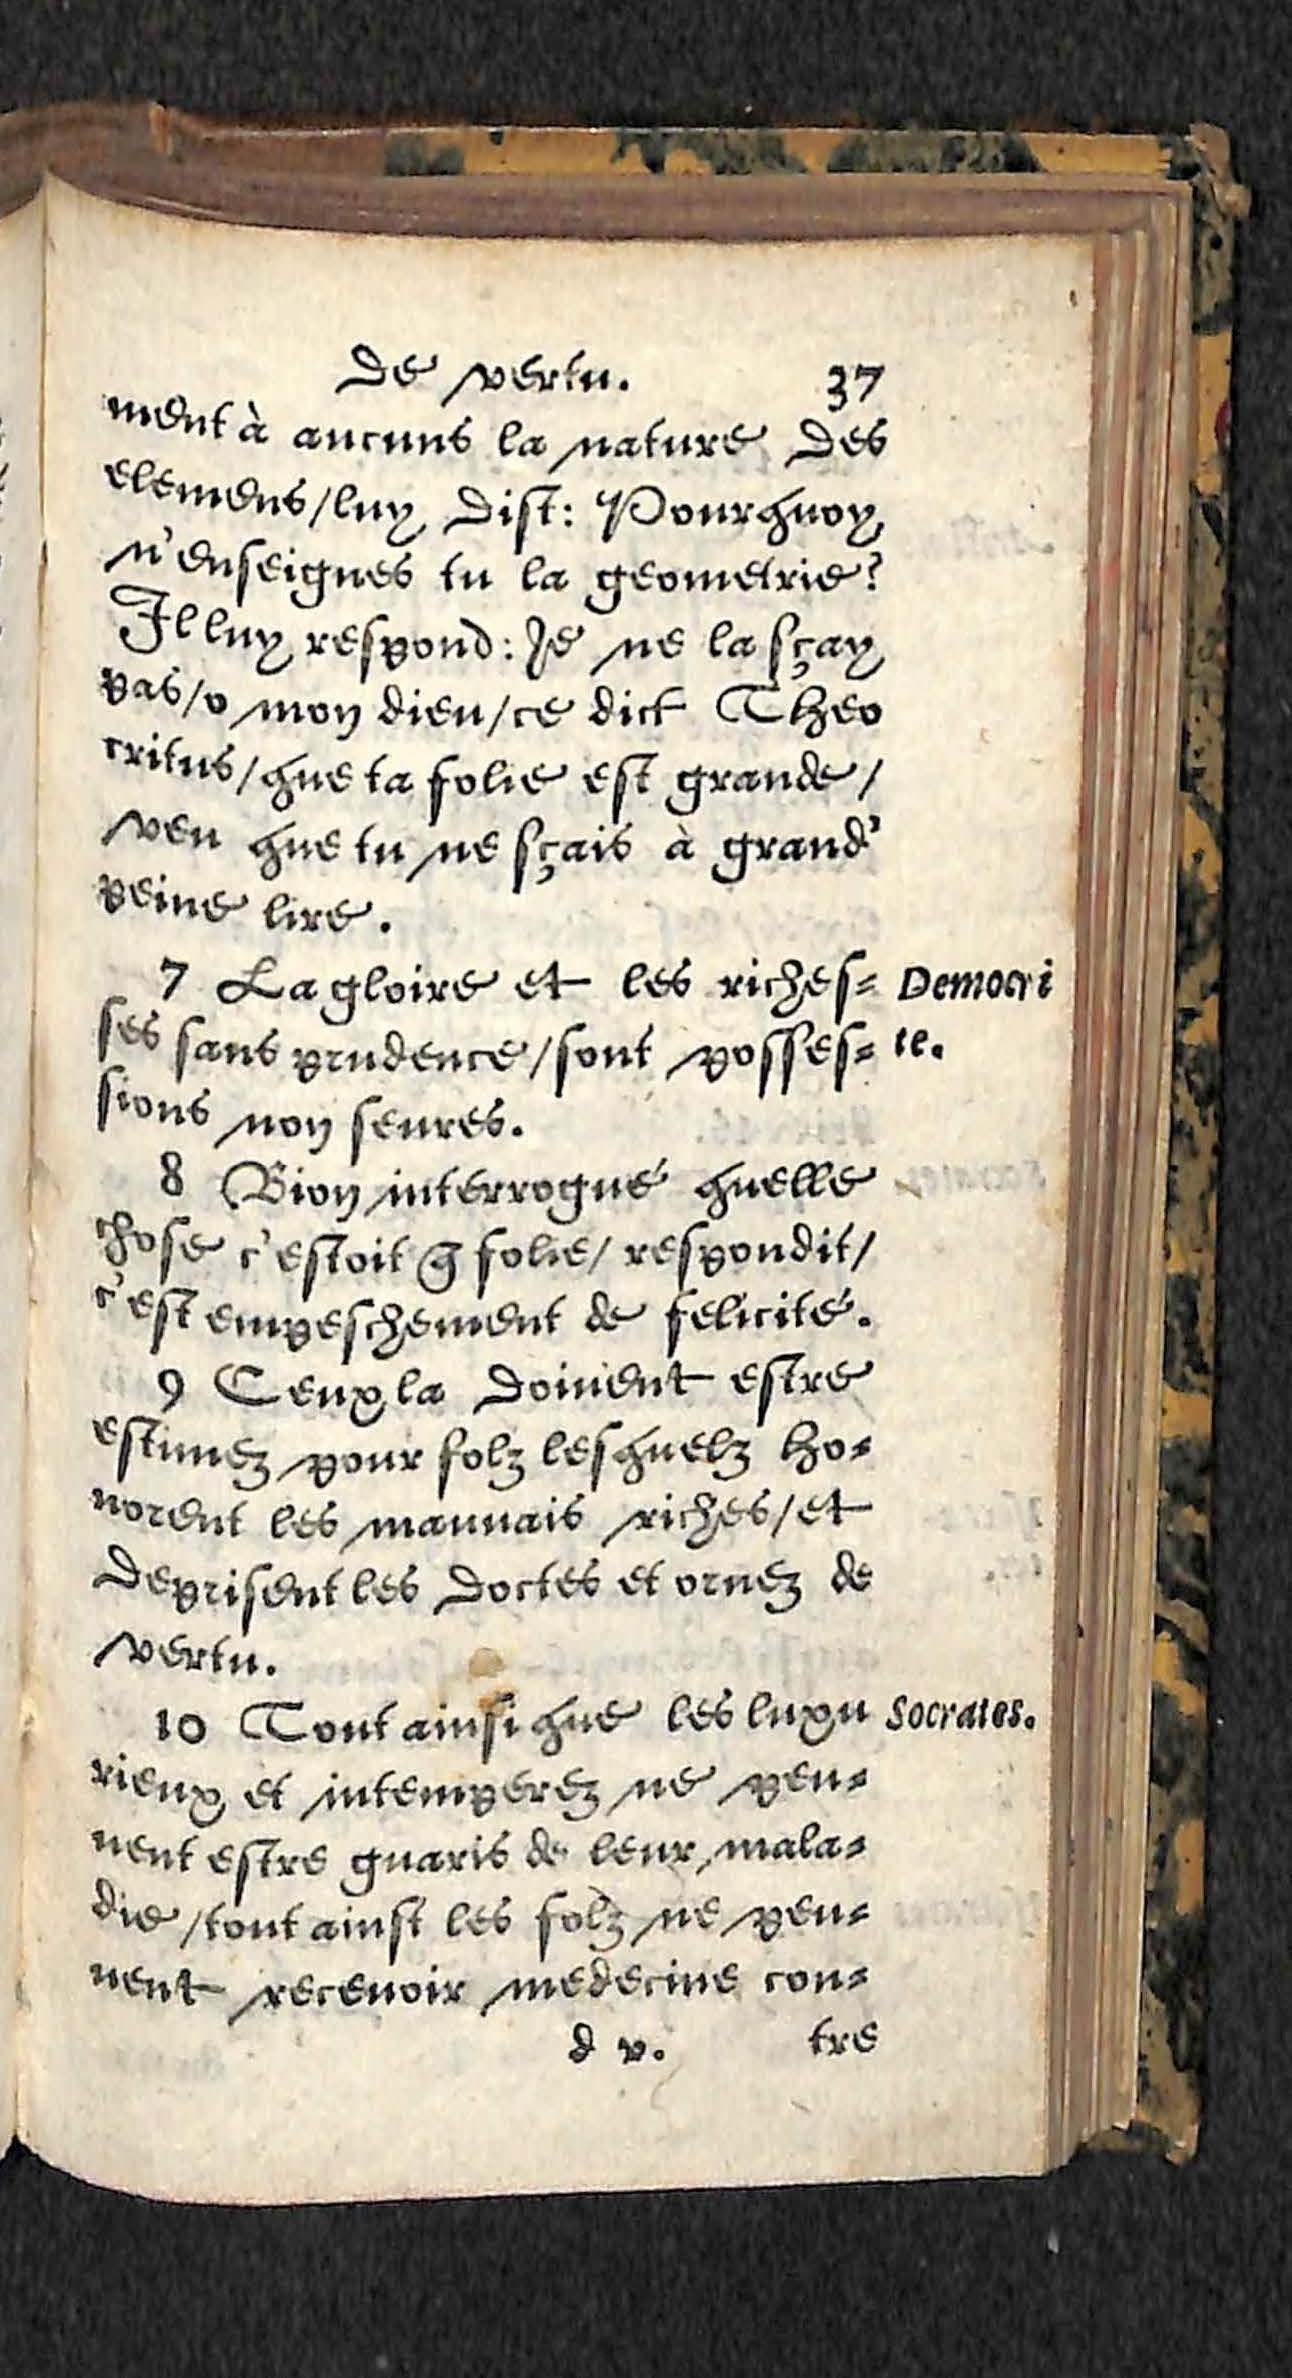 de vertu. 37
ment à aucuns la nature des
elemens/luy dist: Pourquoy
n'enseignes tu la geometrie?
Il luy respond: Je ne la sçay
pas/o mon dieu/ce dict Theo
critus/que ta folie est grande/
veu que tu ne sçais à grand'
peine lire.
7 La gloire et les riches- Democri
ses sans prudence/sont posses- te.
sions non seures.
8 Bion interrogué quelle
chose c'estoit q̃ folie/ respondit/
c'est empeschement de felicité.
9 Ceux la doiuent estre
estimez pour folz lesquelz ho-
norent les mauuais riches/et
deprisent les doctes et ornez de
vertu.
10 Tout ainsi que les luxu Socrates.
rieux et intemperez ne peu-
uent estre guaris de leur mala-
die/tout ainsi les folz ne peu-
uent receuoir medecine con-
d v. tre